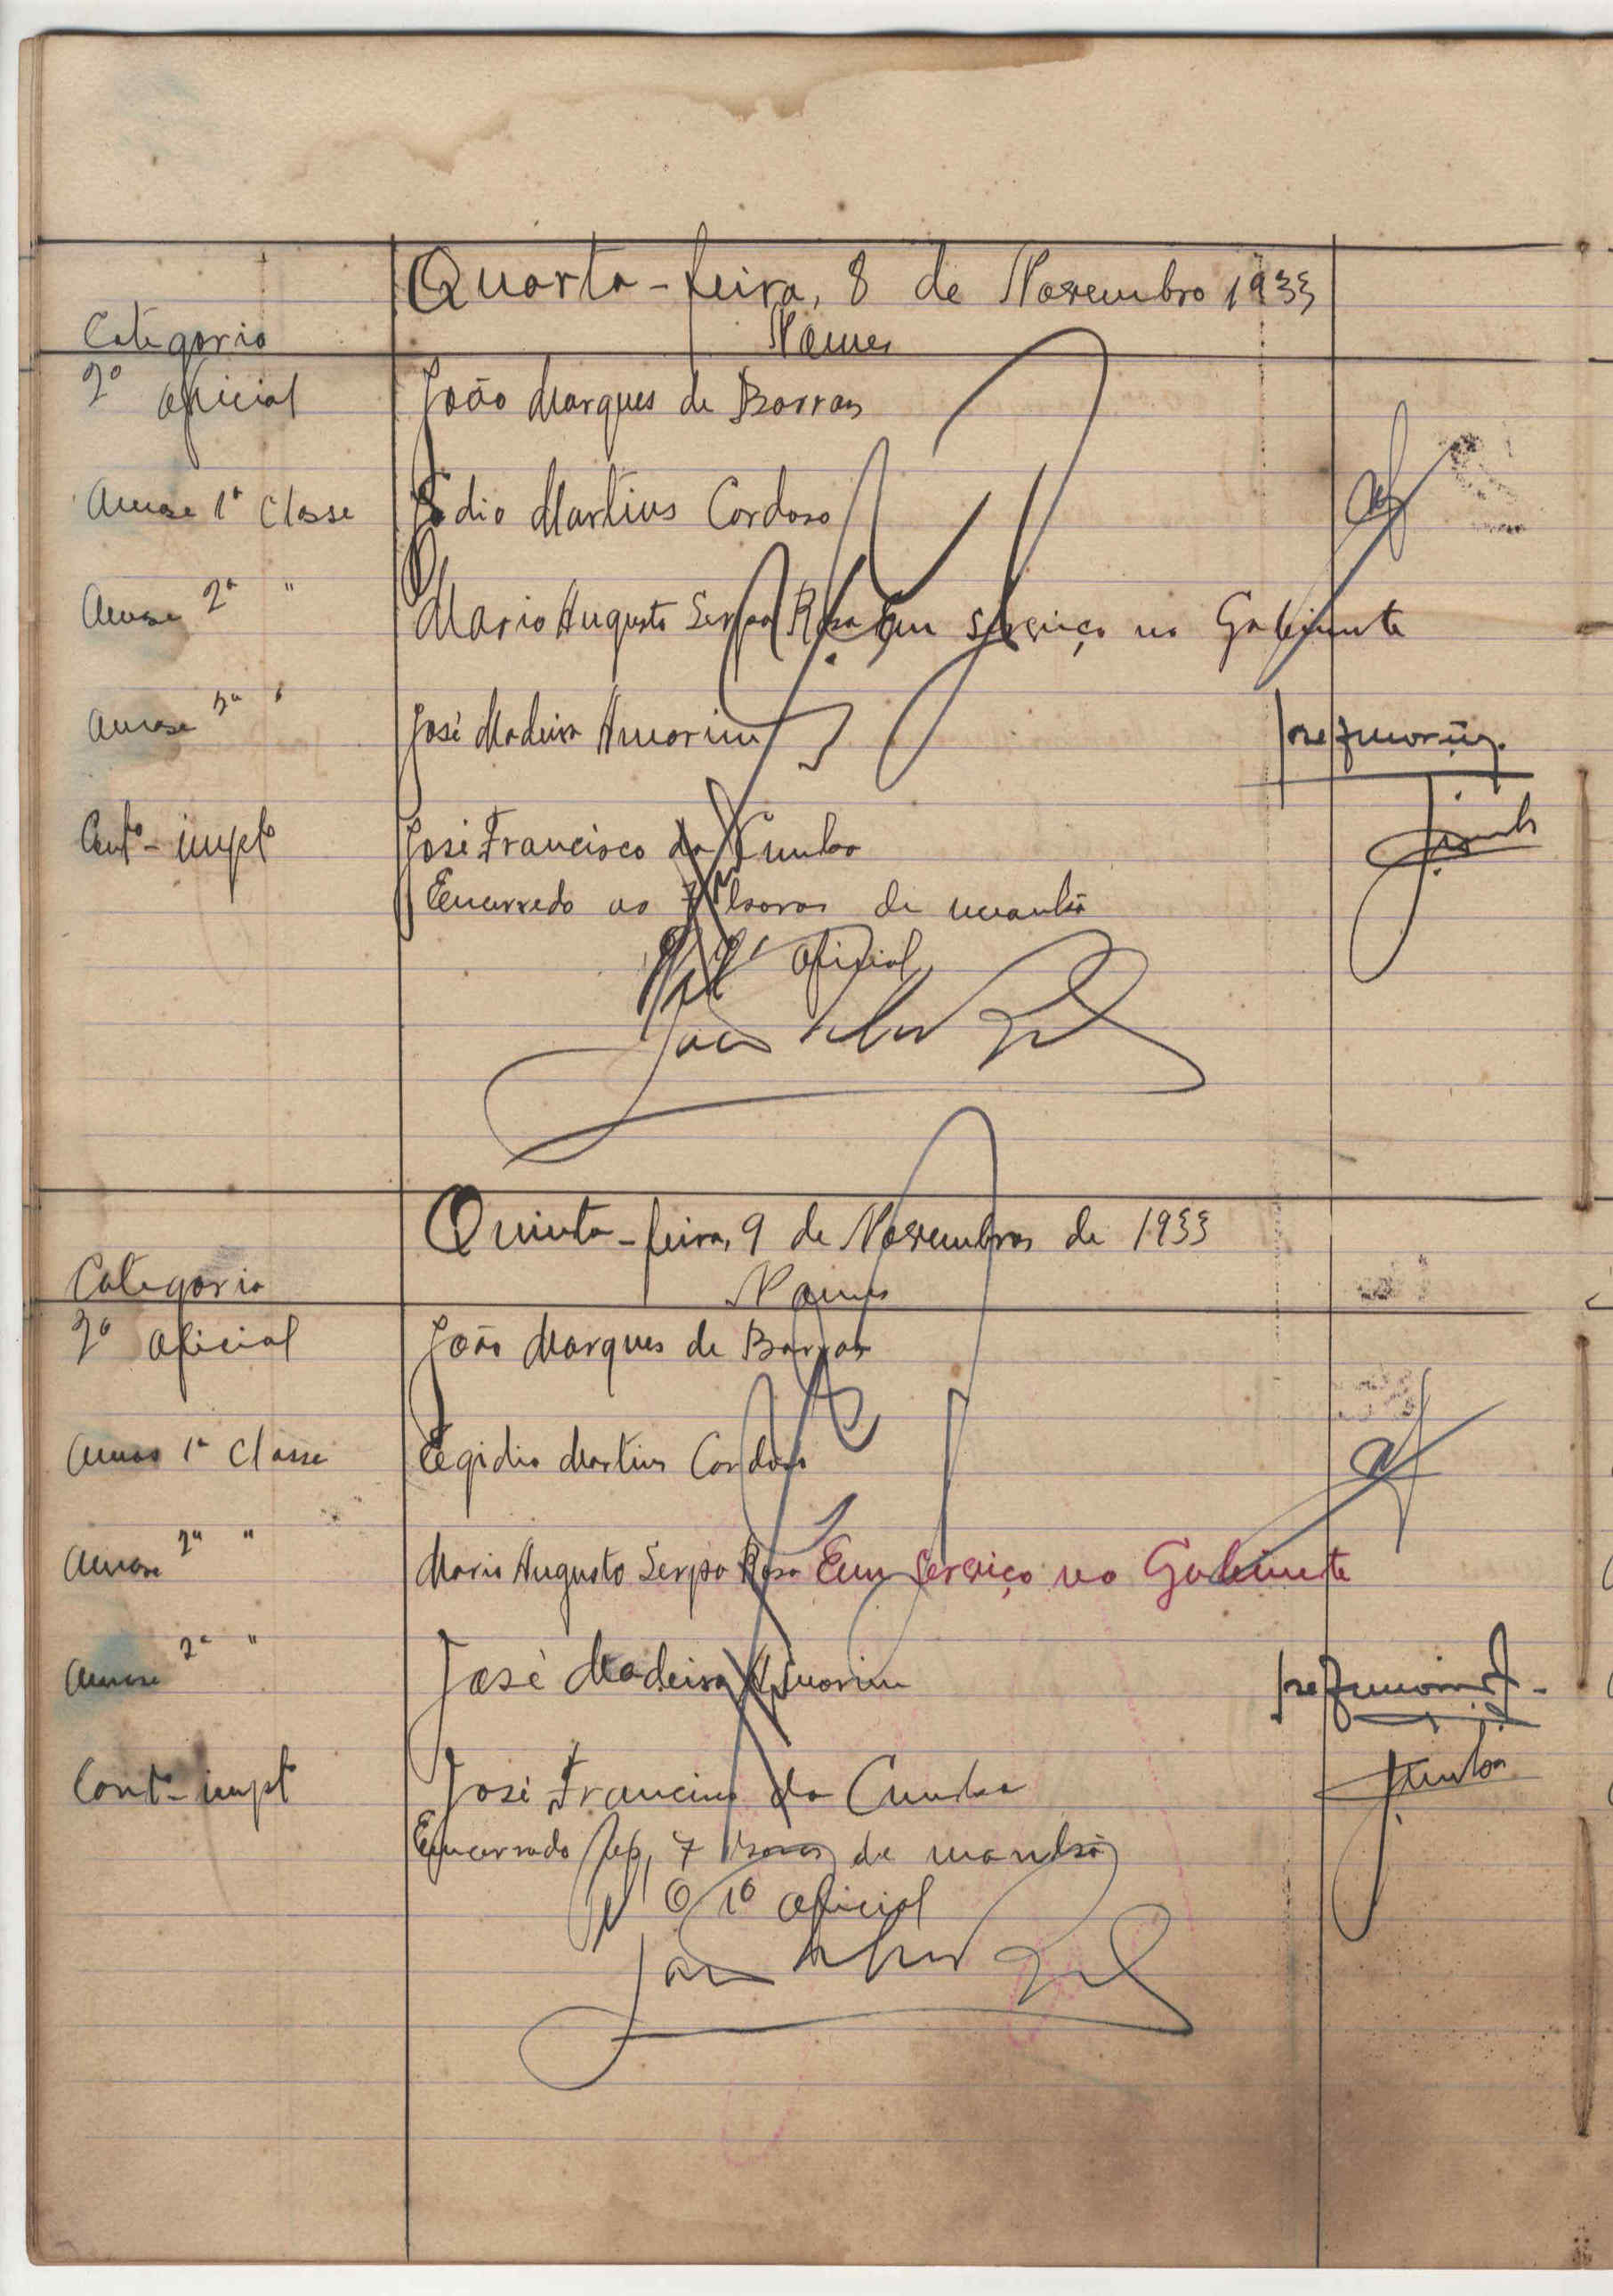 Quarta-feira, 8 de Novembro 1933
Categoria Nomes
2º Oficial João Marques de Barros
1ª Classe Martins Cardoso
2ª " Mario Augusto Serpa Rosa Em serviço no Gabinete
2ª " José Madeira Amorim José Amorim
Contº-impto José Francisco da Cunha
Encerrado as 7 horas de manhã
Oficial
Quinta-feira, 9 de Novembro de 1933
Categoria Nomes
2º Oficial João Marques de Barros
1ª Classe Egidio Martins Cardoso
2ª " Mario Augusto Serpa Rosa Em serviço no Gabinete
2ª " José Madeira Amorim
Contº-impto José Francisco da Cunha Cunha
Encerrado 7 horas de manhã
O 1º Oficial